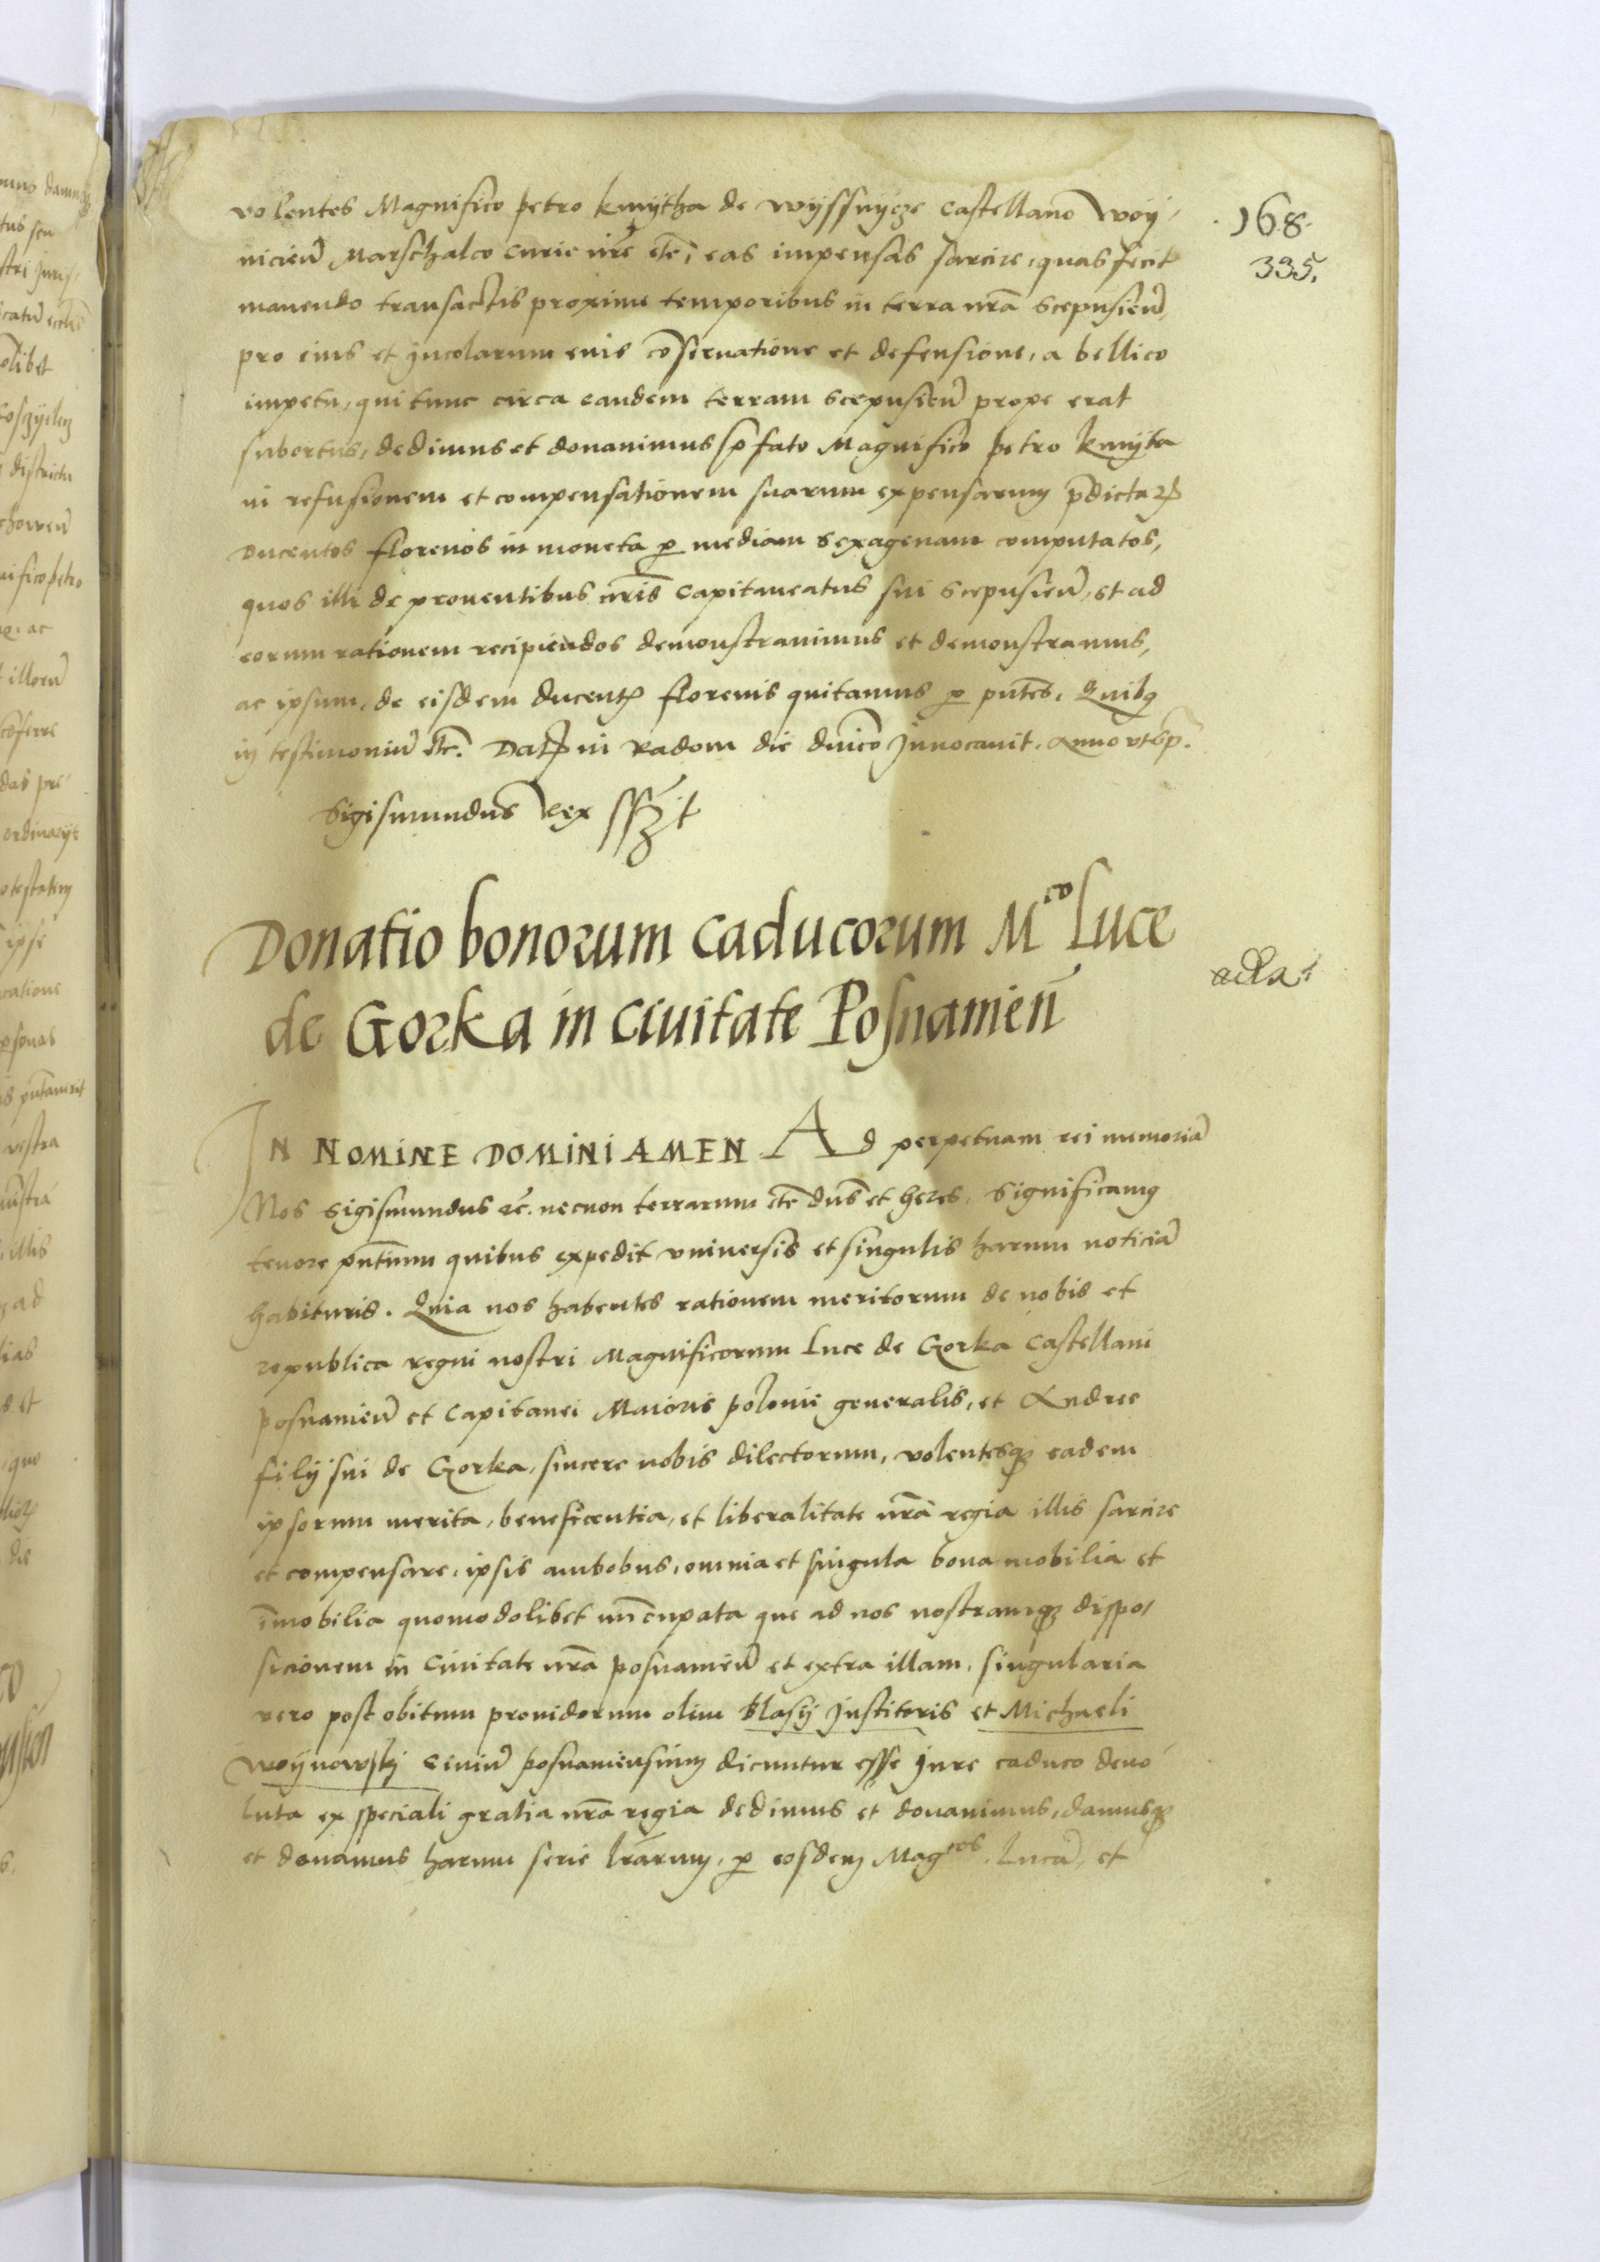 168.
335.
volentes Magnifico petro kmytha de wyssnycze castellano Woy/
nicien̄ Marschalco curie nr̄e etc̄, eas impensas sarcire, quas fecit
manendo transactis proxime temporibus in terra nr̄a scepusien̄,
pro eius et jncolarum euis cōseruatione et defensione, a bellico
impetu, qui tunc circa eandem terram scepusien̄ prope erat
subortus, dedimus et donauimus p̄fato Magnifico petro kmyta
in refusionem et compensationem suarum expensarum p̄dictaꝝ
Ducentos florenos in moneta ꝑ mediam sexagenam computatos,
quos illi de prouentibus nr̄is Capitaneatus sui scepusien̄, et ad
eorum rationem recipiendos demonstrauimus et demonstramus,
ac ipsum, de eisdem ducentꝭ florenis quitamus ꝑ pn̄tes. Quibꝫ
in testimoniū etc̄. Datꝭ in Radom die dn̄ico Jnnocauit. Anno vt sp̄.
Sigismundus Rex sszt
Donatio bonorum caducorum M^co Luce
de Gorka in ciuitate Posnamien̄
acta
IN NOMINE DOMINI AMEN Ad perpetuam rei memoriā
Nos Sigismundus ꝛc̄. necnon terrarum etc̄ dn̄s et heres. Significamꝫ
tenore pn̄tium quibus expedit vniuersis et singulis harum noticiā
habituris. Quia nos habentes rationem meritorum de nobis et
republica regni nostri Magnificorum Luce de Gorka Castellani
posnamien̄ et Capitanei Maioris polonie generalis, et Andree
filij sui de Gorka, sincere nobis dilectorum, volentesqꝫ eadem
ipsorum merita, beneficentia, et liberalitate nr̄a regia illis sarcire
et compensare, ipsis ambobus, omnia et singula bona mobilia et
īmobilia quomodolibet nūcupata que ad nos nostramqꝫ dispo/
sicionem in Ciuitate nr̄a posnamien̄ et extra illam, singularia
vero post obitum prouidorum olim blasij Jnstitoris et Michaeli
Woynowskj Ciuiū posnamiensium dicuntur esse Jure caduco deuo/
luta ex speciali gratia nr̄a regia dedimus et donauimus, damusqꝫ
et donamus harum serie lr̄arum, ꝑ eosdem Mag^cos. Lucā, et